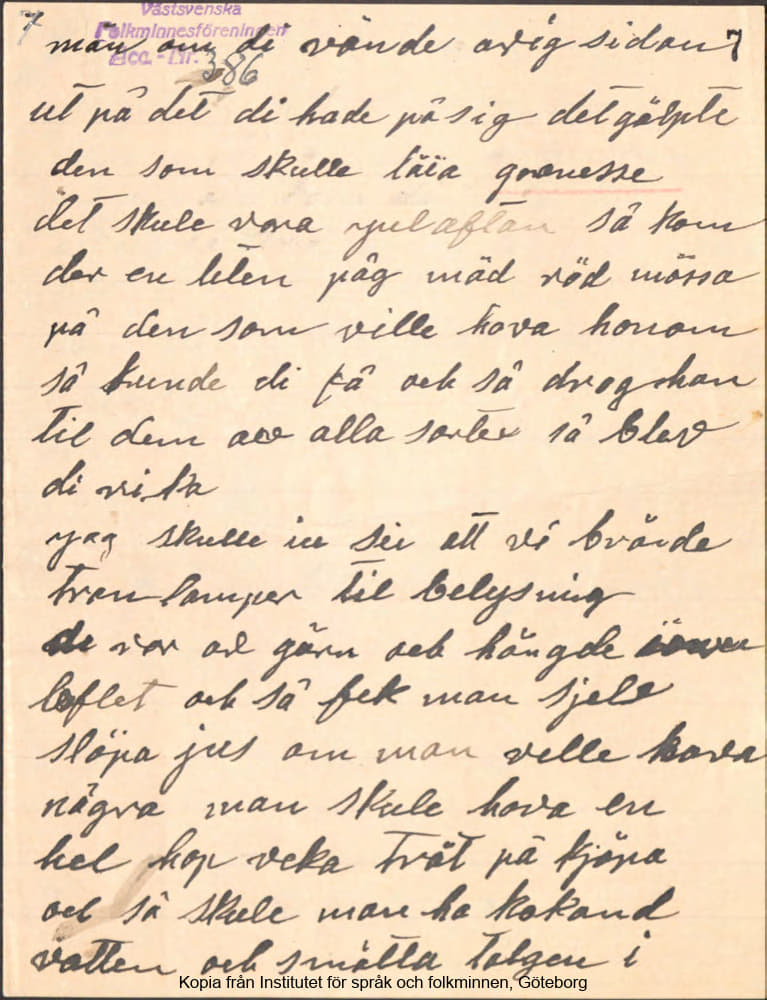 7
Västsvenska
Folkminnesföreningen
Acc.-Nr. 386
män om di vände avig sidan 7
ut på det di hade på sig det gälpte
den som skulle läia
det skule vara yulaftan så kom
der en liten påg mäd röd mössa
på den som ville hava honom
så kunde di få och så drog han
til dem av alla sorter så blev
di rika
yag skulle in sei att vi brände
tran lamper til belysning
de var av gärn och hängde
loftet och så fek man sjelv
stöpa jus om man velle hava
några man skule hava en
hel hop veka tråt på kjöpa
och så skule man ha kokand
vatten och smälta talgen i
Kopia från Institutet för språk och folkminnen, Göteborg